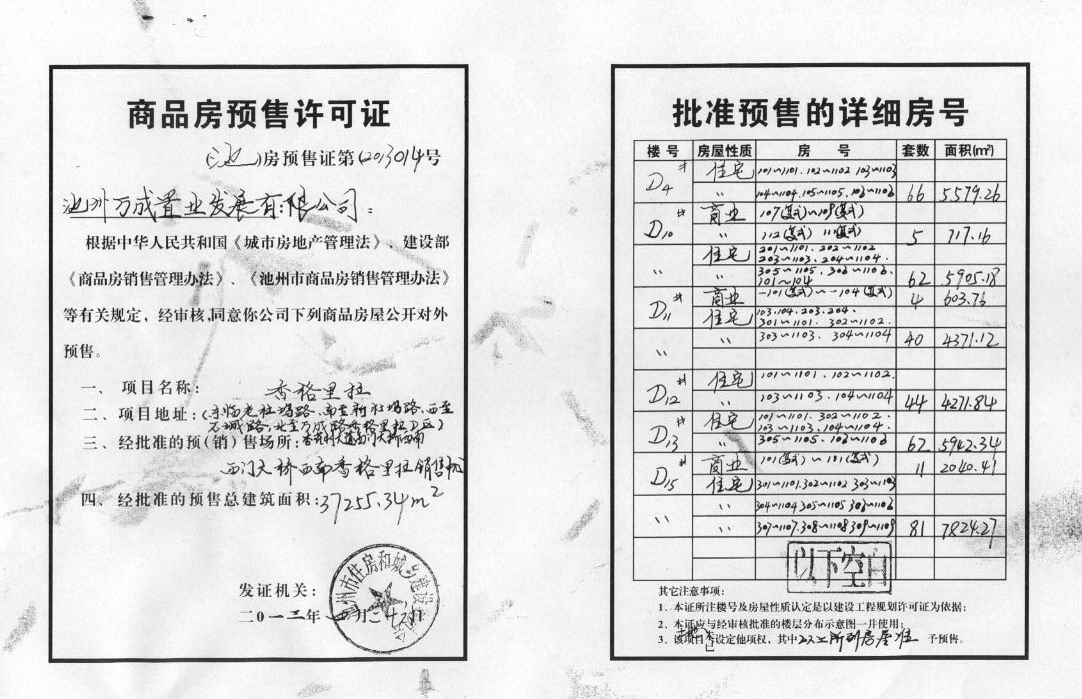 商品房预售许可证
(池)房预售证第(2013014号
池州万成置业发展有限公司：
根据中华人民共和国《城市房地产管理法》、建设部
《商品房销售管理办法》、《池州市商品房销售管理办法》
等有关规定，经审核,同意你公司下列商品房屋公开对外
预售。
一、 项目名称: 香格里拉
二、项目地址:(东临老杜坞路、南至新杜坞路、西至
石城路、北至万成路香格里拉D区)
三、经批准的预(销)售场所:
西门大桥西南香格里拉销售
四、经批准的预售总建筑面积:37255.34m²
发证机关:
二〇一三年 月二十 日
池州市住房和城乡建设
批准预售的详细房号
楼号 房屋性质 房 号 套数 面积(m²)
D4# 住宅 101~1101.102~1102 103~1103
〃 104~1104.105~1105.106~1106 66 5579.26
D10# 商业 107(复式)~109(复式)
〃 112(复式) 111(复式) 5 717.16
住宅 201~1101.202~1102
203~1103.204~1104.
〃 305~1105.306~1106.
101~104 62 5905.18
D11# 商业 -101(复式)~-104(复式) 4 603.76
住宅 103.104.203.204.
301~1101.302~1102.
〃 303~1103.304~1104 40 4371.12
D12# 住宅 101~1101.102~1102.
〃 103~1103.104~1104 44 4271.84
D13# 住宅 101~1101.302~1102.
103~1103.104~1104.
〃 305~1105.106~1106 62 5942.34
D15# 商业 101(复式)~111(复式) 11 2040.41
住宅 301~1101.302~1102 303~1103
304~1104 305~1105 306~1106
〃 〃 307~1107.308~1108 309~1109 81 7824.27
以下空白
其它注意事项:
1、本证所注楼号及房屋性质认定是以建设工程规划许可证为依据;
2、本证应与经审核批准的楼层分布示意图一并使用;
3、该项目 设定他项权，其中以上所列房屋准 予预售。